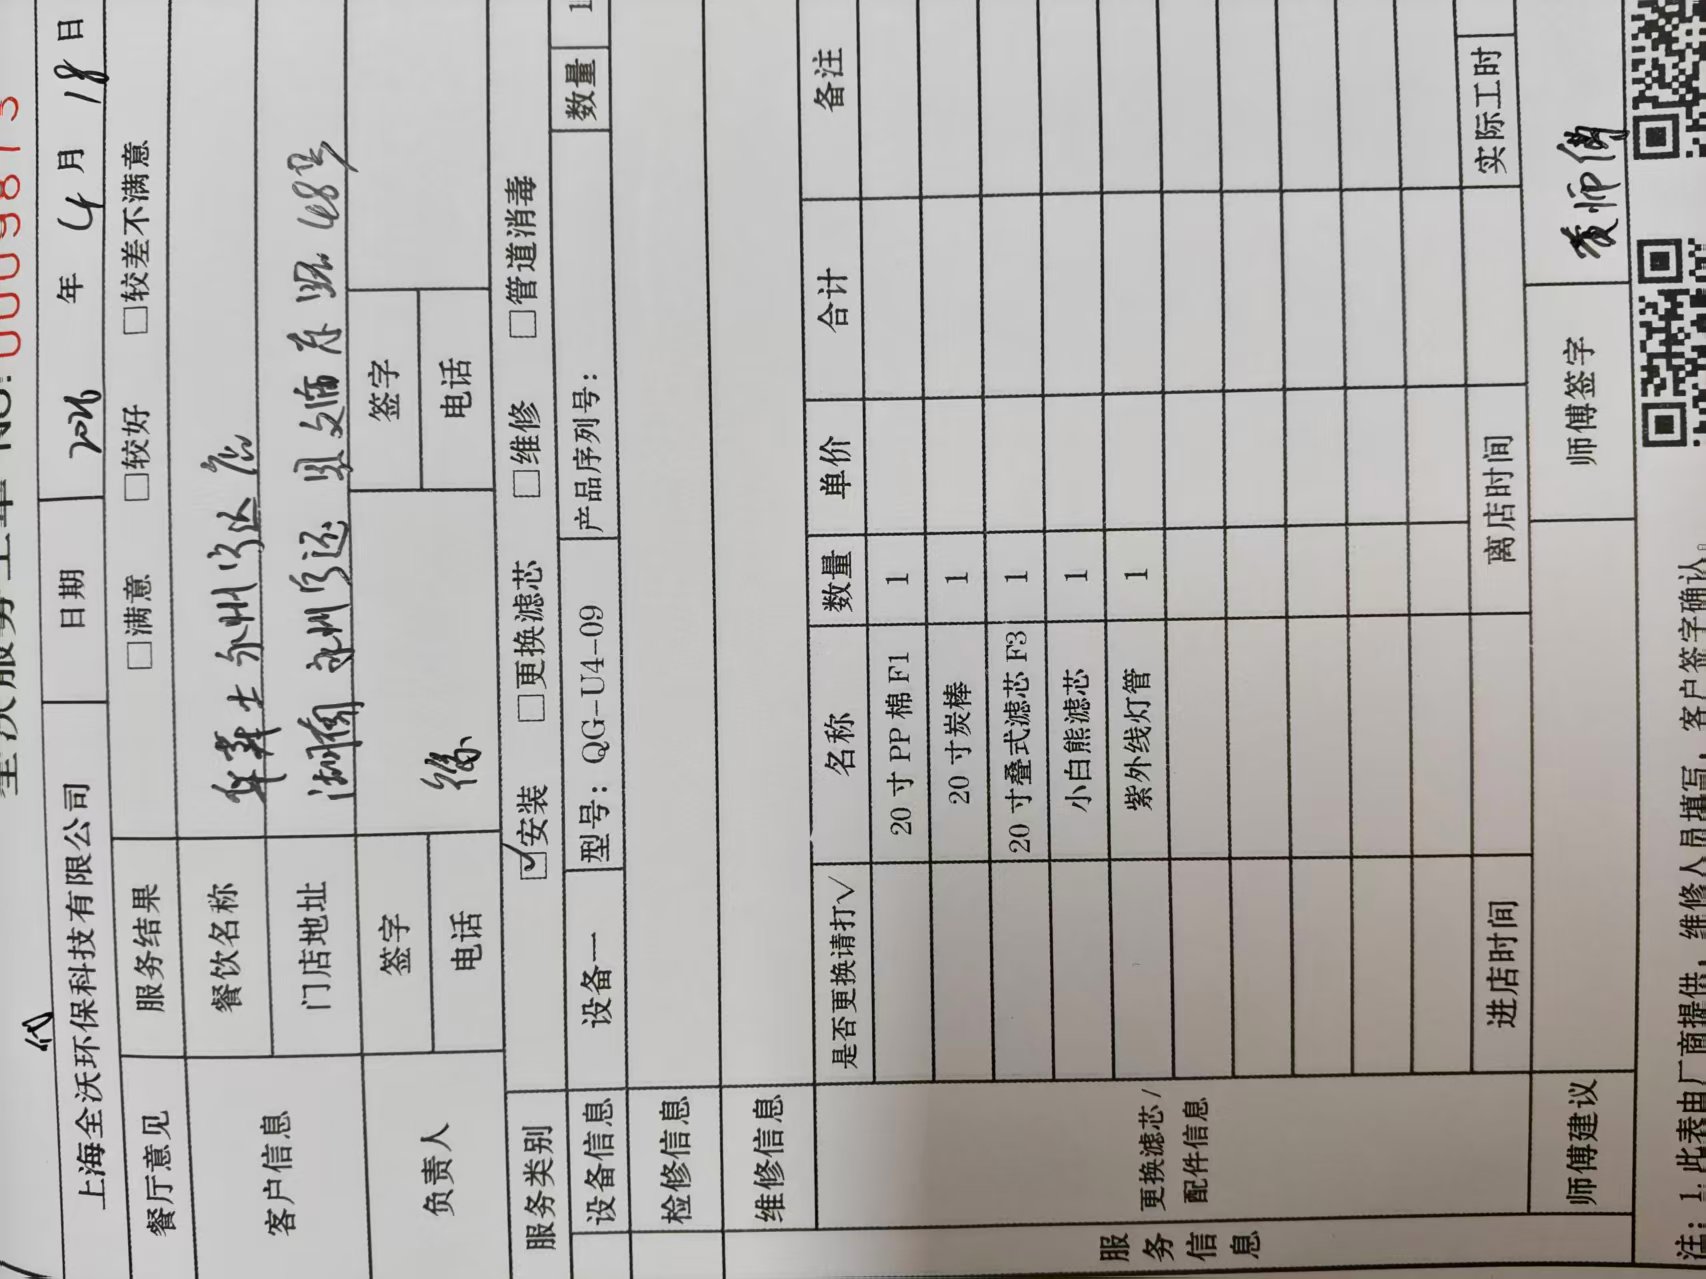 全沃服务工单 NO: 0009873
代
上海全沃环保科技有限公司 日期 2026 年 4 月 18 日
餐厅意见 服务结果 □满意 □较好 □较差不满意
客户信息 餐饮名称 华莱士永州宁远店
门店地址 湖南永州宁远县文庙东路48号
负责人 签字 签字
电话 电话
服务类别 ☑安装 □更换滤芯 □维修 □管道消毒
设备信息 设备一 型号：QG-U4-09 产品序列号： 数量 1
检修信息
维修信息
服务信息
更换滤芯/配件信息
是否更换请打√ 名称 数量 单价 合计 备注
20寸PP棉F1 1
20寸炭棒 1
20寸叠式滤芯F3 1
小白熊滤芯 1
紫外线灯管 1
进店时间 离店时间 实际工时
师傅建议 师傅签字 黄师傅
注：1.此表由厂商提供，维修人员填写，客户签字确认。